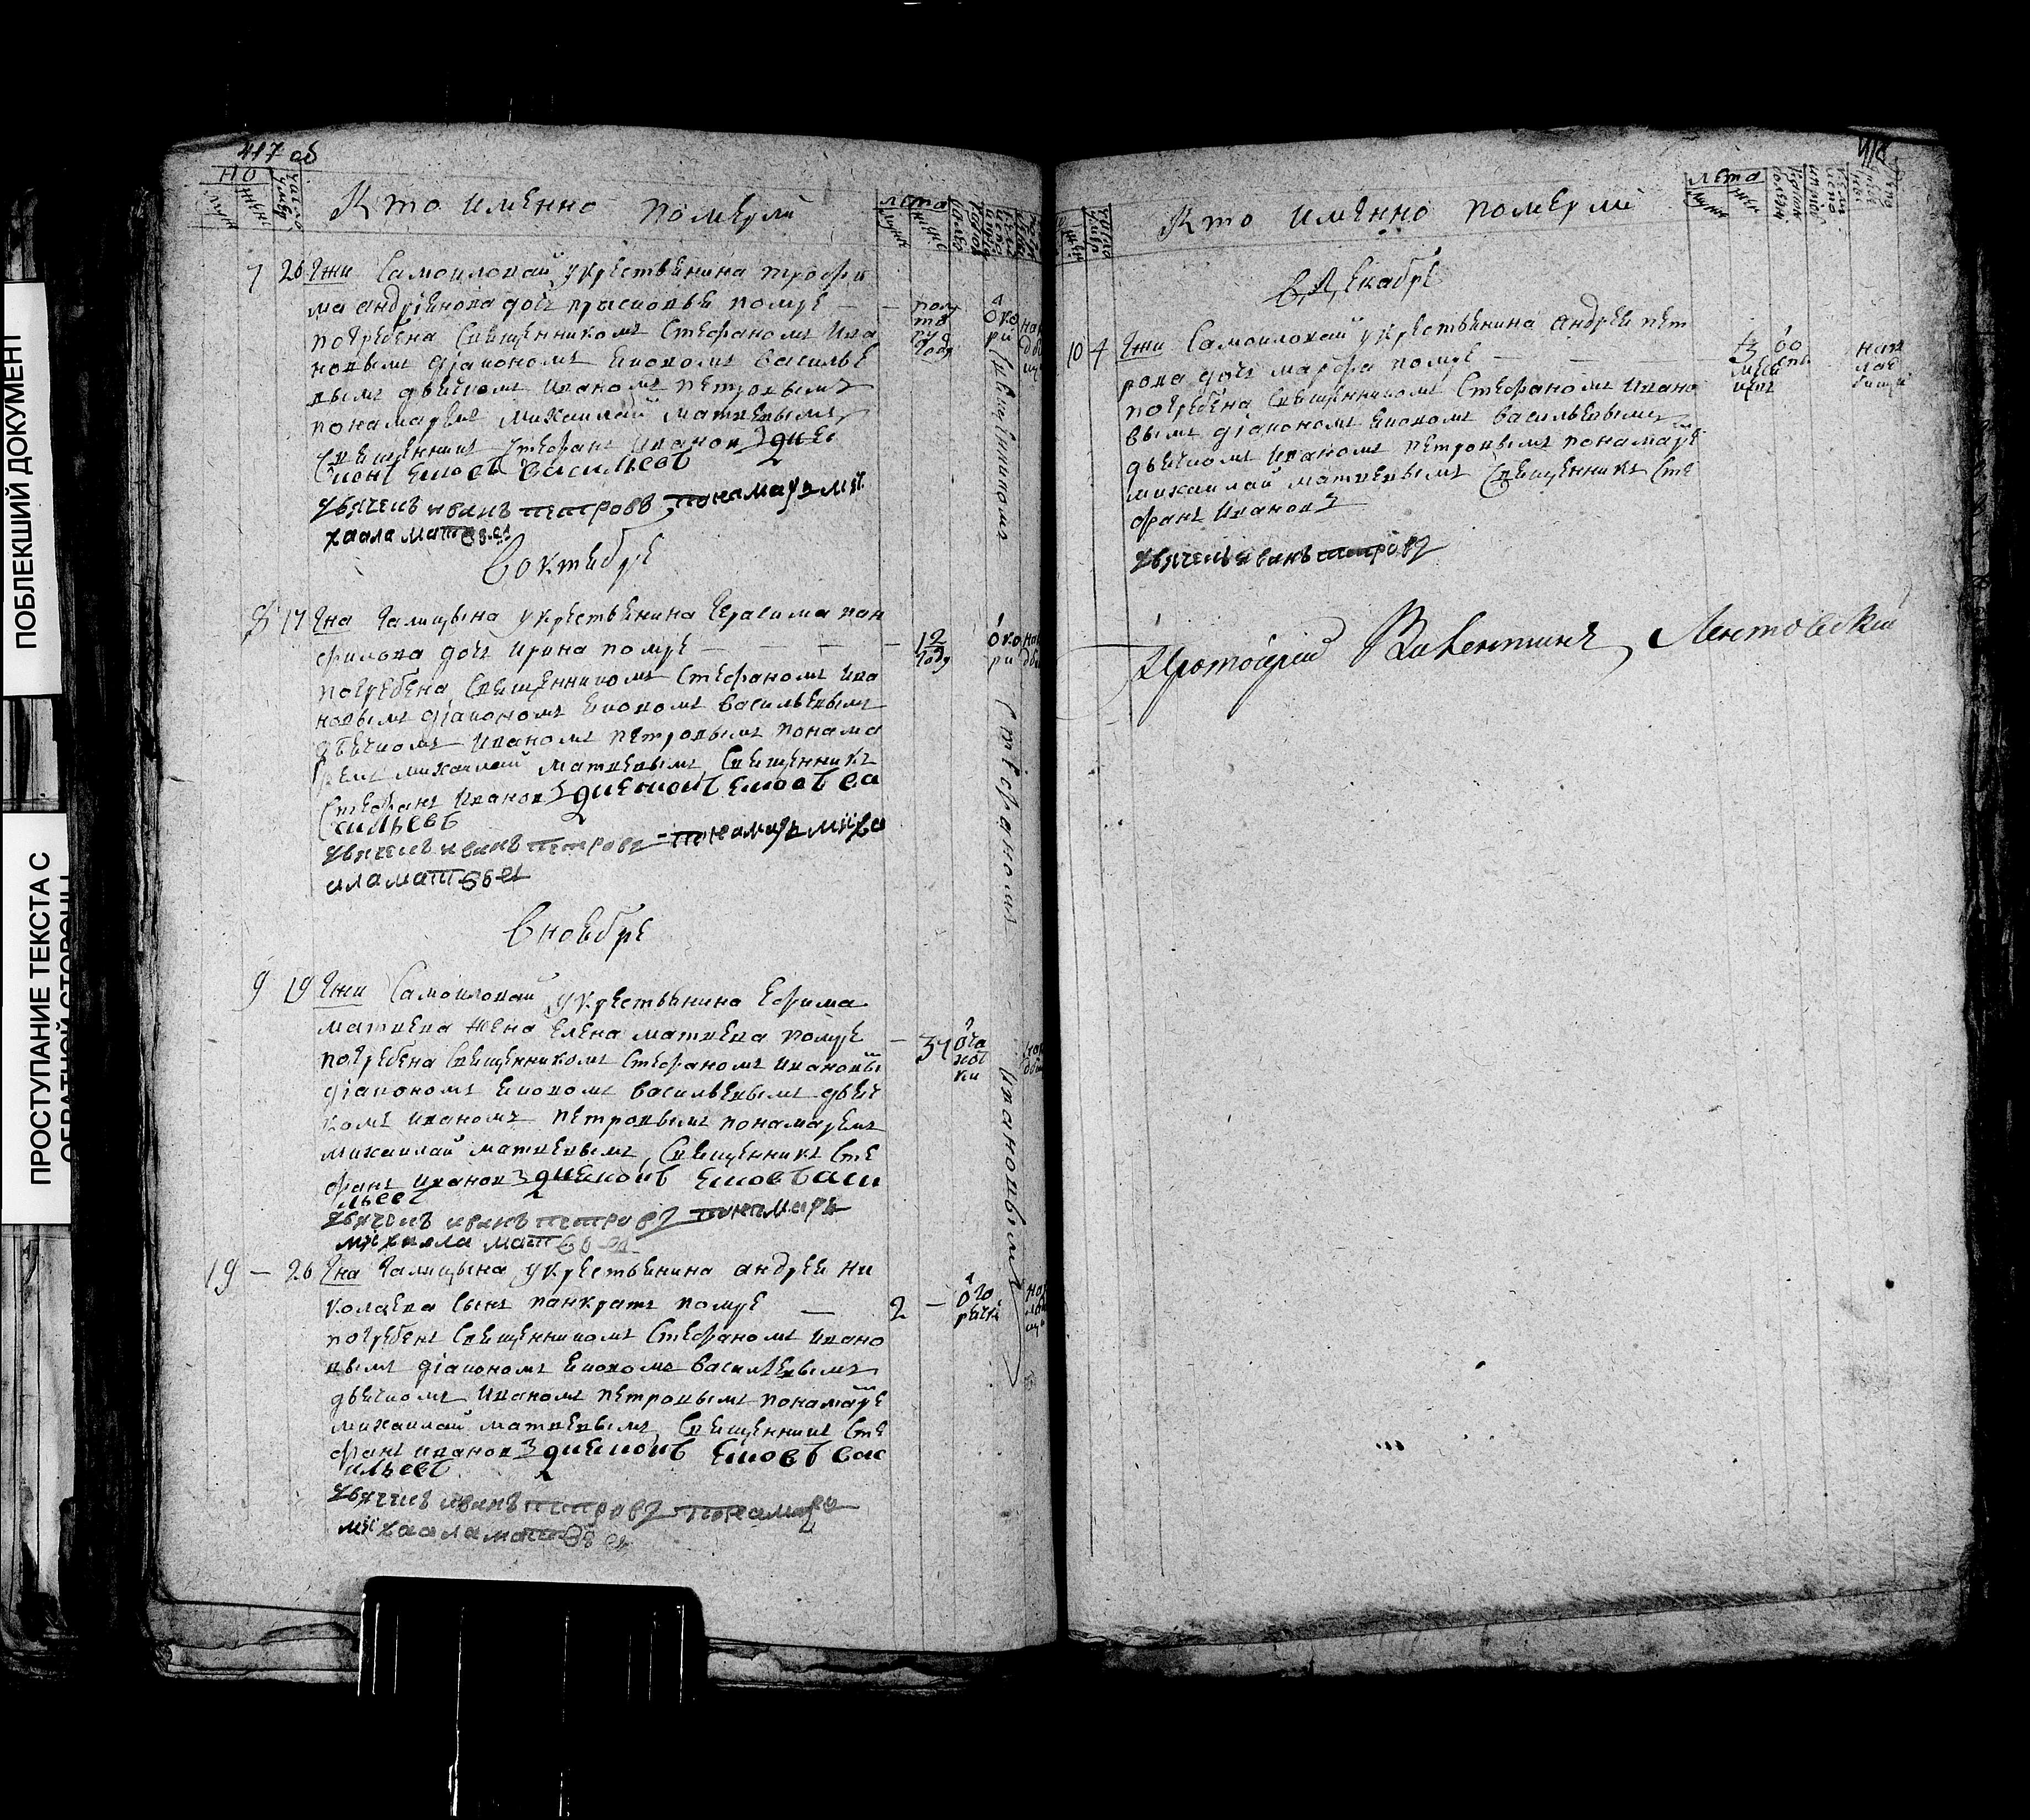 ПОБЛЕКШИЙ ДОКУМЕНТ
ПРОСТУПАНИЕ ТЕКСТА С
ОБРАТНОЙ СТОРОНЫ
417 об
Кто имЕнно помЕрли
лета
7 26 Гжи Самоиловай у крЕстьянина трофи
ма андрiянова дочь прасковья помрЕ —
погрЕбЕна СвящЕнникомъ СтЕфаномъ Ива
новымъ дiакономъ Еиовомъ ВасильЕ
вымъ дьячкомъ Иваномъ пЕтровымъ
понамарЕмъ михаилай матвЕвымъ
СвящЕнникъ СтЕфанъ Иванов дiЕ
конъ Емовъ васильевъ
дьячекъ иванъ петровъ понамарь ми
хаала матвеев
В октябрЕ
8 17 Гна Галицына у крЕстьянина Герасима пан
филова дочь Ирина помрЕ — — —
12 году
погрЕбЕна СвящЕнникомъ СтЕфаномъ Ива
новымъ дiакономъ Еиовомъ ВасильЕвымъ
дьячкомъ Иваномъ пЕтровымъ понама
рЕмъ михаилай матвЕвымъ СвящЕнникъ
СтЕфанъ Иванов диЕконъ Емовъ ва
сильевъ
дьячекъ иванъ петровъ понамарь миха
ила матвеев
В ноябрЕ
9 19 Гжи Самоиловай у крЕстьянина Ефима
матвЕва жЕна ЕлЕна матвЕва помрЕ
— 34
погрЕбЕна СвящЕнникомъ СтЕфаномъ Ивановы
дiакономъ Еиовомъ ВасильЕвымъ дьяч
комъ Иваномъ пЕтровымъ понамарЕмъ
михаилай матвЕвымъ СвящЕнникъ СтЕ
фанъ Иванов диЕконъ Емовъ Васи
льевъ
дьячекъ иванъ петровъ понамарь
михаила матвеев
19 — 26 Гна Галицына у крЕстьянина андрЕя ни
колаЕва сынъ панкратъ помрЕ —
2 —
погрЕбЕнъ СвящЕнникомъ СтЕфаномъ Ивано
вымъ дiакономъ Еиовомъ ВасильЕвымъ
дьячкомъ Иваномъ пЕтровымъ понамарЕ
михаилай матвЕвымъ СвящЕнникъ СтЕ
фанъ Иванов диЕконъ Емовъ Вас
ильевъ
дьячекъ иванъ петровъ понамарь
михаала матвеев
СвящЕнникомъ СтЕфаномъ Ивановымъ
418
Кто имЕнно помЕрли
лета
в ДЕкабрЕ
10 4 Гжи Самоиловай у крЕстьянина андрЕя пЕт
рова дочь марфа помрЕ — —
погрЕбЕна СвящЕнникомъ СтЕфаномъ Ивано
вымъ дiакономъ Еиовомъ ВасильЕвымъ
дьячкомъ Иваномъ пЕтровымъ понамарЕ
михаилай матвЕвымъ СвящЕнникъ СтЕ
фанъ Иванов
дьячекъ иванъ петровъ
Протоiерей Валентинъ Лентовскiй